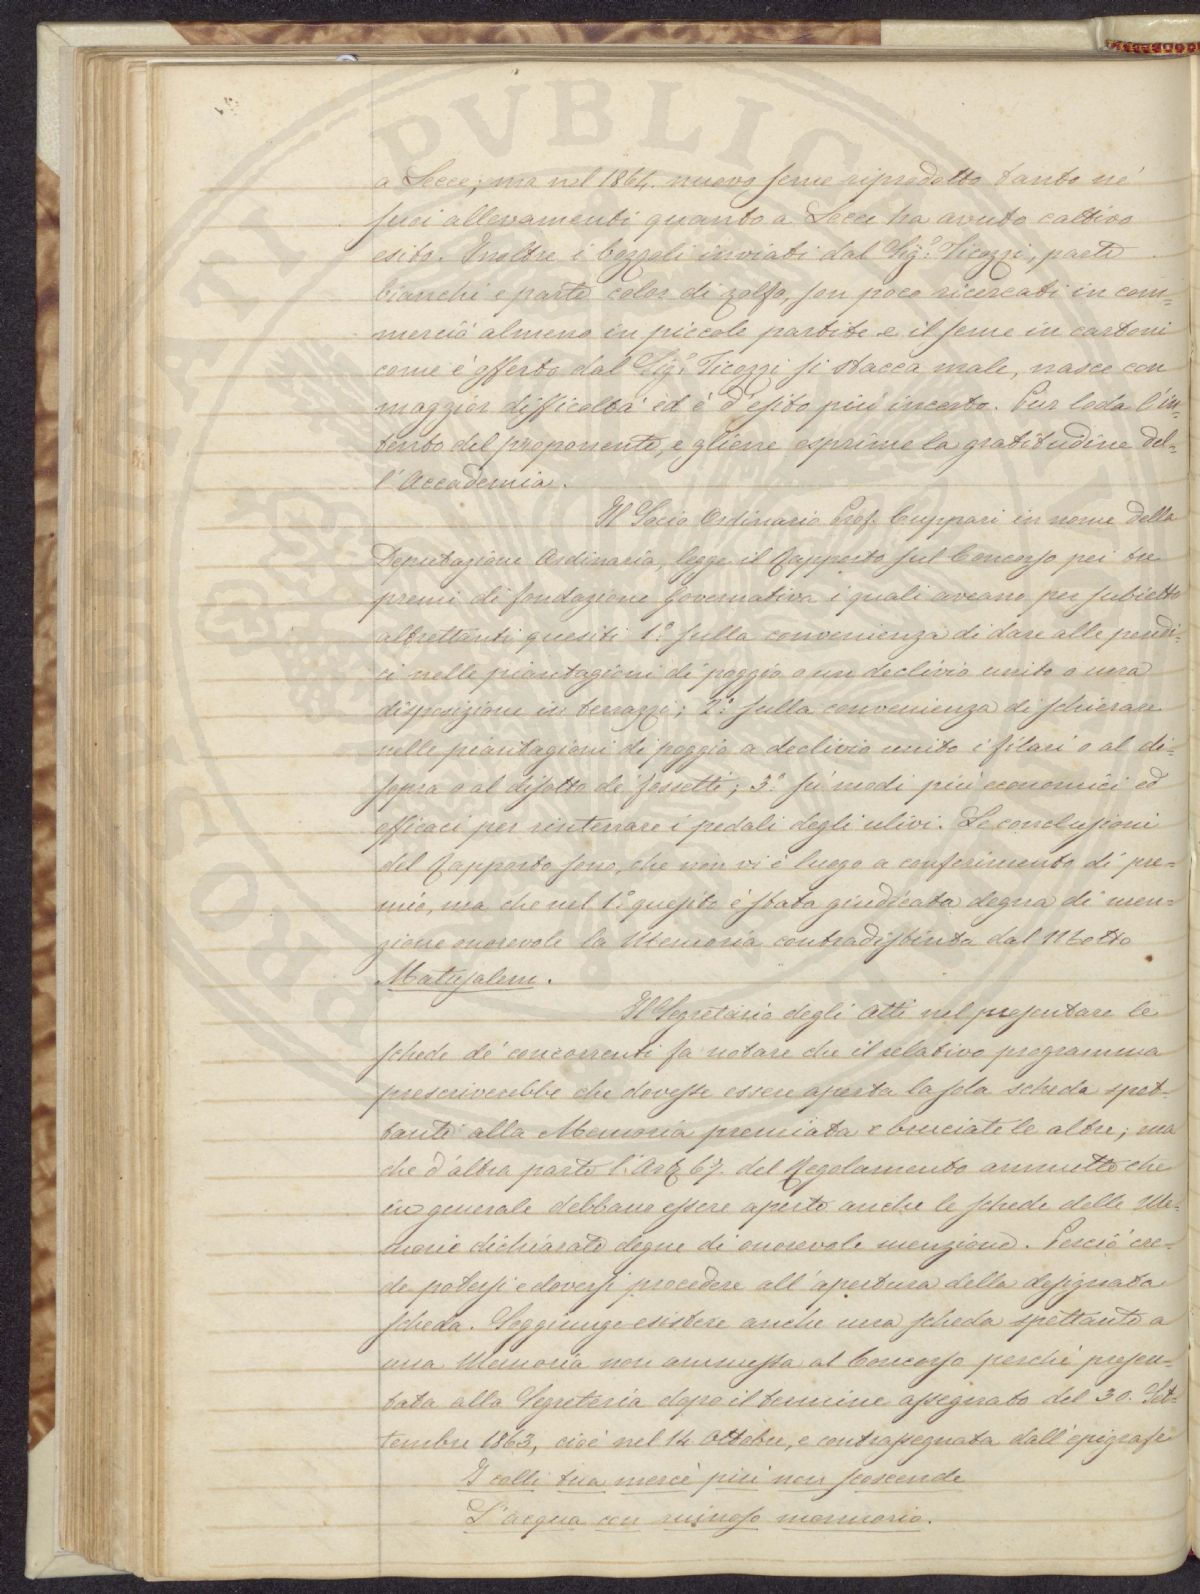 a Lecce; ma nel 1864. nuovo seme riprodotto tanto ne'
suoi allevamenti quanto a Lecce ha avuto cattivo
esito. Inoltre i bozzoli inviati dal Sig.r Ticozzi, parte
bianchi e parte color di zolfo, son poco ricercati in com=
mercio almeno in piccole partite e il seme in cartoni
come è offerto dal Sig.r Ticozzi si stacca male, nasce con
maggior difficoltà ed è d'esito più incerto. Pur loda l'in=
tento del proponente, e gliene esprime la gratitudine del=
l'Accademia.
Il Socio Ordinario Prof. Cuppari in nome della
Deputazione Ordinaria, legge il Rapporto sul Concorso pei tre
premi di fondazione Governativa i quali aveano per subietto
altrettanti quesiti 1.o sulla convenienza di dare alle pendi=
ci nelle piantagioni di poggio o un declivio unito o una
disposizione in terrazzi; 2.o sulla convenienza di schierare
nelle piantagioni di poggio a declivio unito i filari o al di=
sopra o al disotto de' fossetti; 3.o su' modi più economici ed
efficaci per rinterrare i pedali degli ulivi. Le conclusioni
del Rapporto sono, che non vi è luogo a conferimento di pre=
mio, ma che nel 1.o quesito è stata giudicata degna di men=
zione onorevole la Memoria contradistinta dal Motto
Matusalem.
Il Segretario degli Atti nel presentare le
schede de' concorrenti fa notare che il relativo programma
prescriverebbe che dovesse essere aperta la sola scheda spet=
tante alla Memoria premiata e bruciate le altre; ma
che d'altra parte l'Art. 67. del Regolamento ammette che
in generale debbano essere aperte anche le schede delle Me=
morie dichiarate degne di onorevole menzione. Perciò cre=
de potersi e doversi procedere all'apertura della designata
scheda. Soggiunge esistere anche una scheda spettante a
una Memoria non ammessa al Concorso perchè presen=
tata alla Segreteria dopo il termine assegnato del 30. Set=
tembre 1863, cioè nel 14 Ottobre, e contrassegnata dall'epigrafe
I colli tua mercè più non scoscende
L'acqua con ruinoso mormorio.
PROBATI PVBLICA